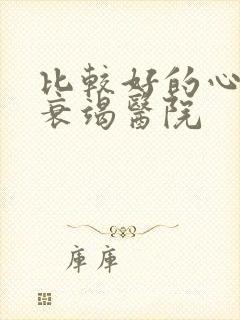 比較好的心
衰竭醫院
庫庫